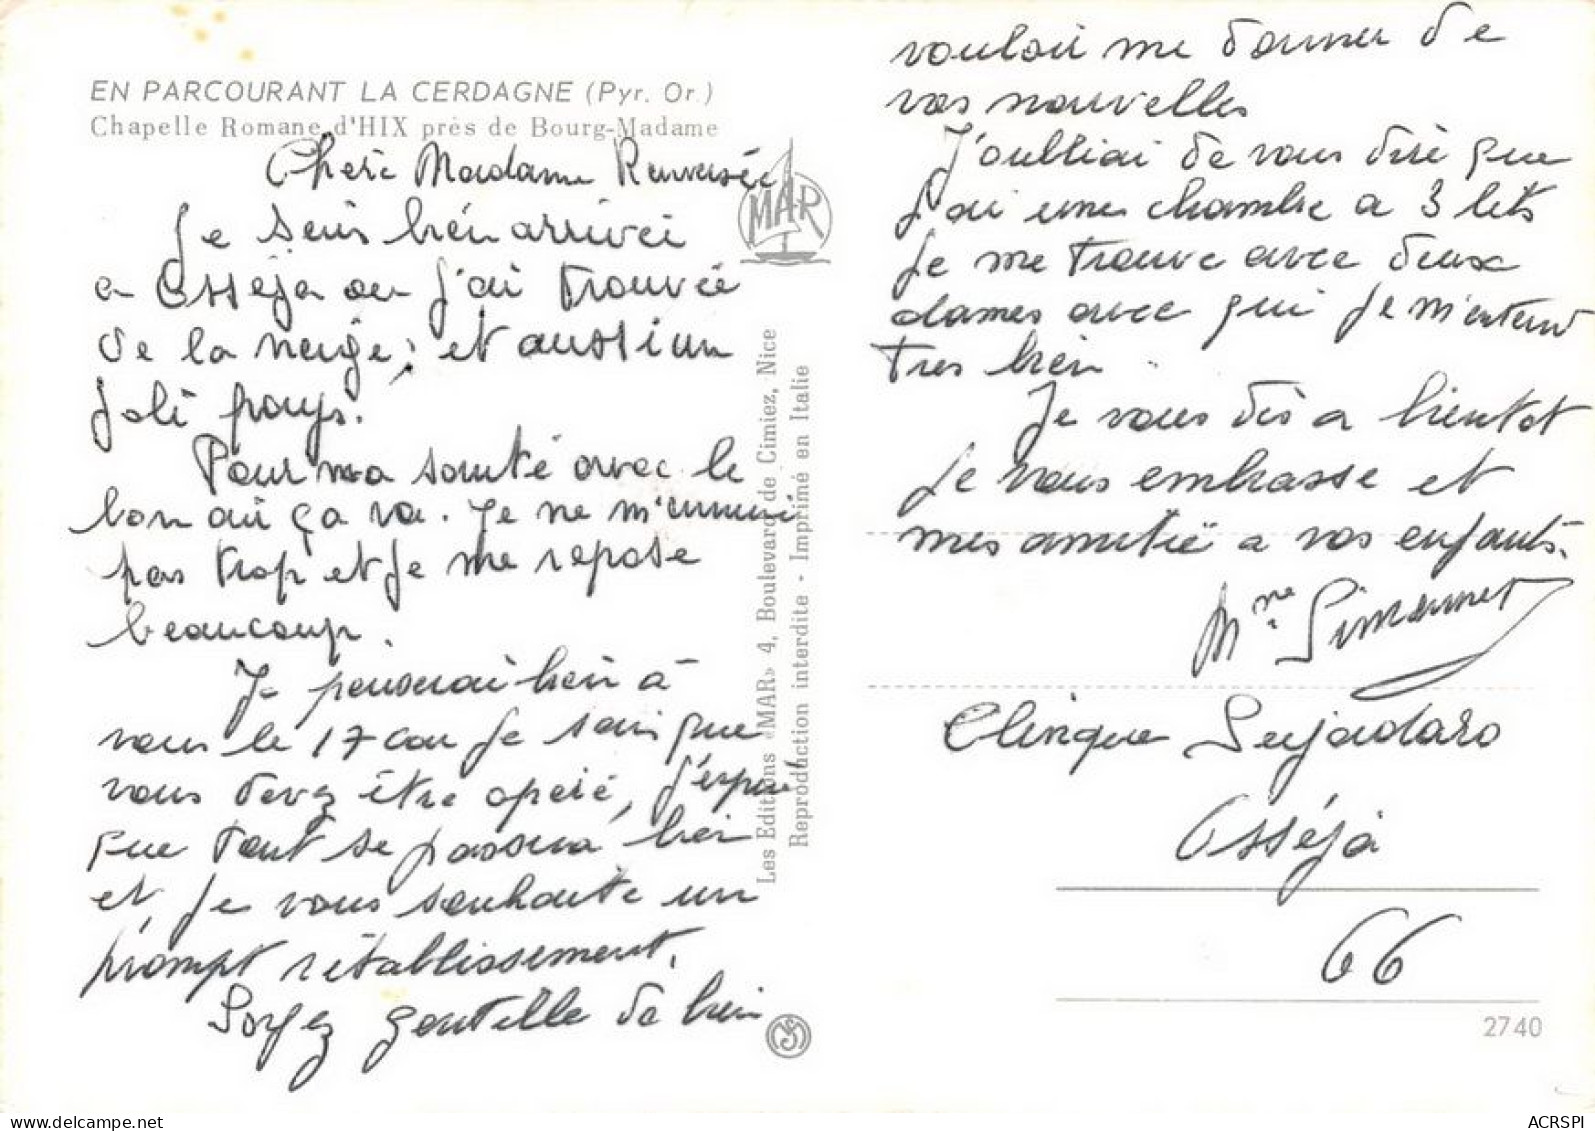 EN PARCOURANT LA CERDAGNE (Pyr. Or.)
Chapelle Romane d'HIX près de Bourg-Madame
Chère Madame
Je suis bien arrivée
a Osséja ou j'ai trouvée
de la neige; et aussi un
joli pays.
Pour ma santé avec le
bon air ça va. Je ne m'ennuie
pas trop et je me repose
beaucoup.
Je penserai bien à
vous le 17 car je sais que
vous devez être opéré, j'espère
que tout se passera bien
et je vous souhaite un
prompt rétablissement.
Soyez gentille de bien
vouloir me donner de
vos nouvelles
J'oubliai de vous dire que
j'ai une chambre a 3 lits
je me trouve avec deux
dames avec qui je m'entend
tres bien.
Je vous dis a bientot
je vous embrasse et
mes amitié a vos enfants.
Mme Simonnet
Clinique
Osséja
66
MAR
Les Editions «MAR» 4, Boulevard de Cimiez, Nice
Reproduction interdite - Imprimé en Italie
2740
ACRSPI